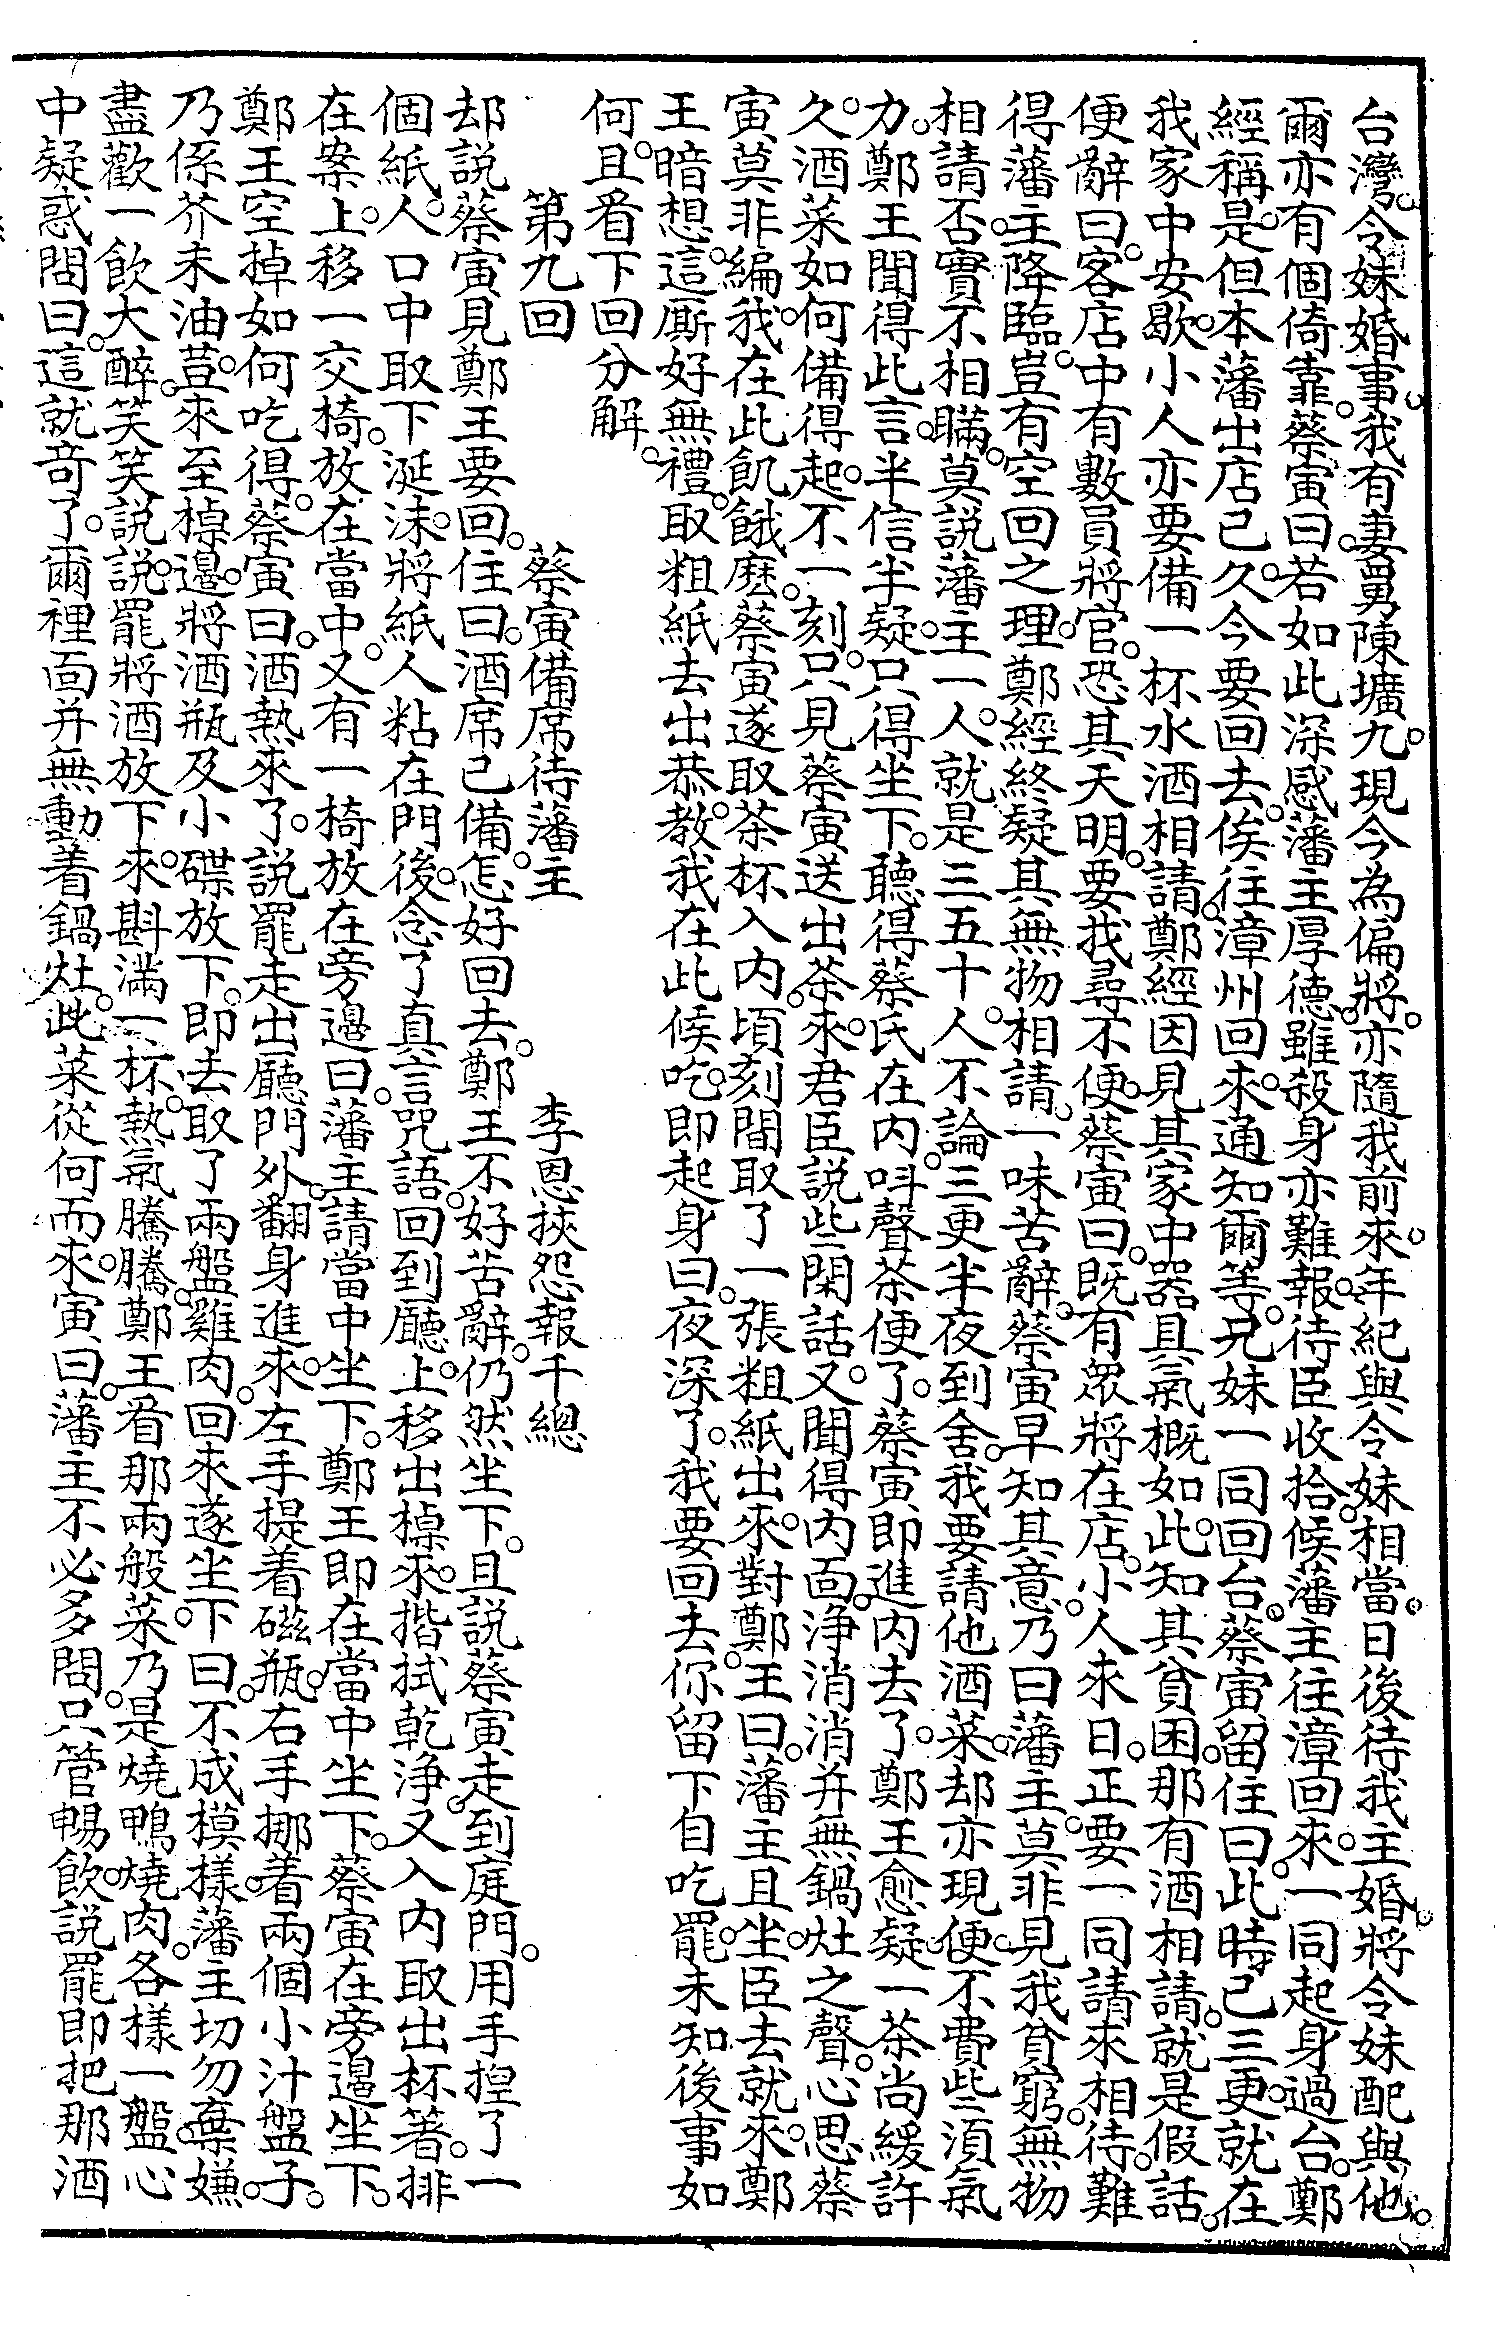 台灣。令妹婚事。我有妻舅陳壙九。現今為偏將。亦隨我前來。年紀與令妹相當。日後待我主婚。將令妹配與他。
爾亦有個倚靠。蔡寅曰。若如此深感藩主厚德。雖殺身亦難報。待臣收拾。候藩主往漳回來。一同起身過台。鄭
經稱是。但本藩出店已久。今要回去。俟往漳州回來。通知爾等。兄妹一同回台。蔡寅留住曰。此時已三更。就在
我家中安歇。小人亦要備一杯水酒相請。鄭經因見其家中器具氣概如此。知其貧困。那有酒相請。就是假話。
便辭曰。客店中有數員將官。恐其天明。要找尋不便。蔡寅曰。既有眾將在店。小人來日。正要一同請來相待。難
得藩主降臨。豈有空回之理。鄭經終疑其無物相請。一味苦辭。蔡寅早知其意。乃曰藩主。莫非見我貧窮。無物
相請。否實不相瞞。莫說藩主一人。就是三五十人。不論三更半夜到舍。我要請他酒菜。却亦現便。不費些湏氣
力。鄭王聞得此言。半信半疑。只得坐下。聽得蔡氏在內。呌聲茶便了。蔡寅即進內去了。鄭王愈疑。一茶尚緩許
久。酒菜如何備得起。不一刻。只見蔡寅送出茶來。君臣說些閑話。又聞得內面。淨消消并無鍋灶之聲。心思。蔡
寅莫非編我。在此飢餓麽。蔡寅遂取茶杯入內。頃刻間取了一張粗紙出來。對鄭王曰。藩主且坐。臣去就來。鄭
王暗想。這厮好無禮。取粗紙去出恭。教我在此候吃。即起身曰。夜深了。我要回去。你留下自吃罷。未知後事如
何。且看下回分解。
第九回　蔡寅備席待藩主　李恩挾怨報千總
却說蔡寅見鄭王要回。住曰。酒席已備。怎好回去。鄭王不好苦辭。仍然坐下。且說蔡寅走到庭門。用手揑了一
個紙人。口中取下涎沫。將紙人粘在門後。念了真言咒語。回到廳上。移出棹來。揩拭乾淨。又入內取出杯箸。排
在案上。移一交椅。放在當中。又有一椅放在旁邊曰。藩主請當中坐下。鄭王即在當中坐下。蔡寅在旁邊坐下。
鄭王空掉如何吃得。蔡寅曰。酒熱來了。說罷走出廳門外。翻身進來。左手提着磁瓶。右手挪着兩個小汁盤子。
乃係芥未油荳。來至棹邊。將酒瓶及小碟放下。即去取了兩盤雞肉。回來遂坐下曰。不成模樣。藩主切勿棄嫌。
盡歡一飲大醉。笑笑說說。罷將酒放下來。斟滿一杯。熱氣騰騰。鄭王看那兩般菜。乃是燒鴨燒肉。各樣一盤。心
中疑惑問曰。這就竒了。爾裡面并無動着鍋灶。此菜從何而來。寅曰。藩主不必多問。只管暢飲。說罷即把那酒